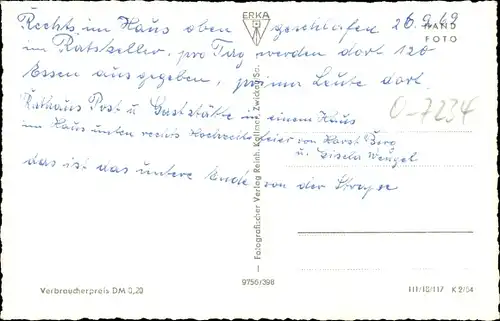 Rechts im Haus oben geschlafen 26.9.69
im Ratskeller. pro Tag werden dort 120
Essen ausgegeben, prima Leute dort.
Rathaus Post u Gaststätte in einem Haus
im Haus unten rechts Hochzeitsfeier von Horst Berg
u. Gisela Wengel
das ist das untere Ende von der Strasse
ERKA
HAND
FOTO
O-7234
Fotografischer Verlag Reinh. Kallmer, Zwickau/Sa.
9756/398
Verbraucherpreis DM 0,20
III/10/117 K 2/64